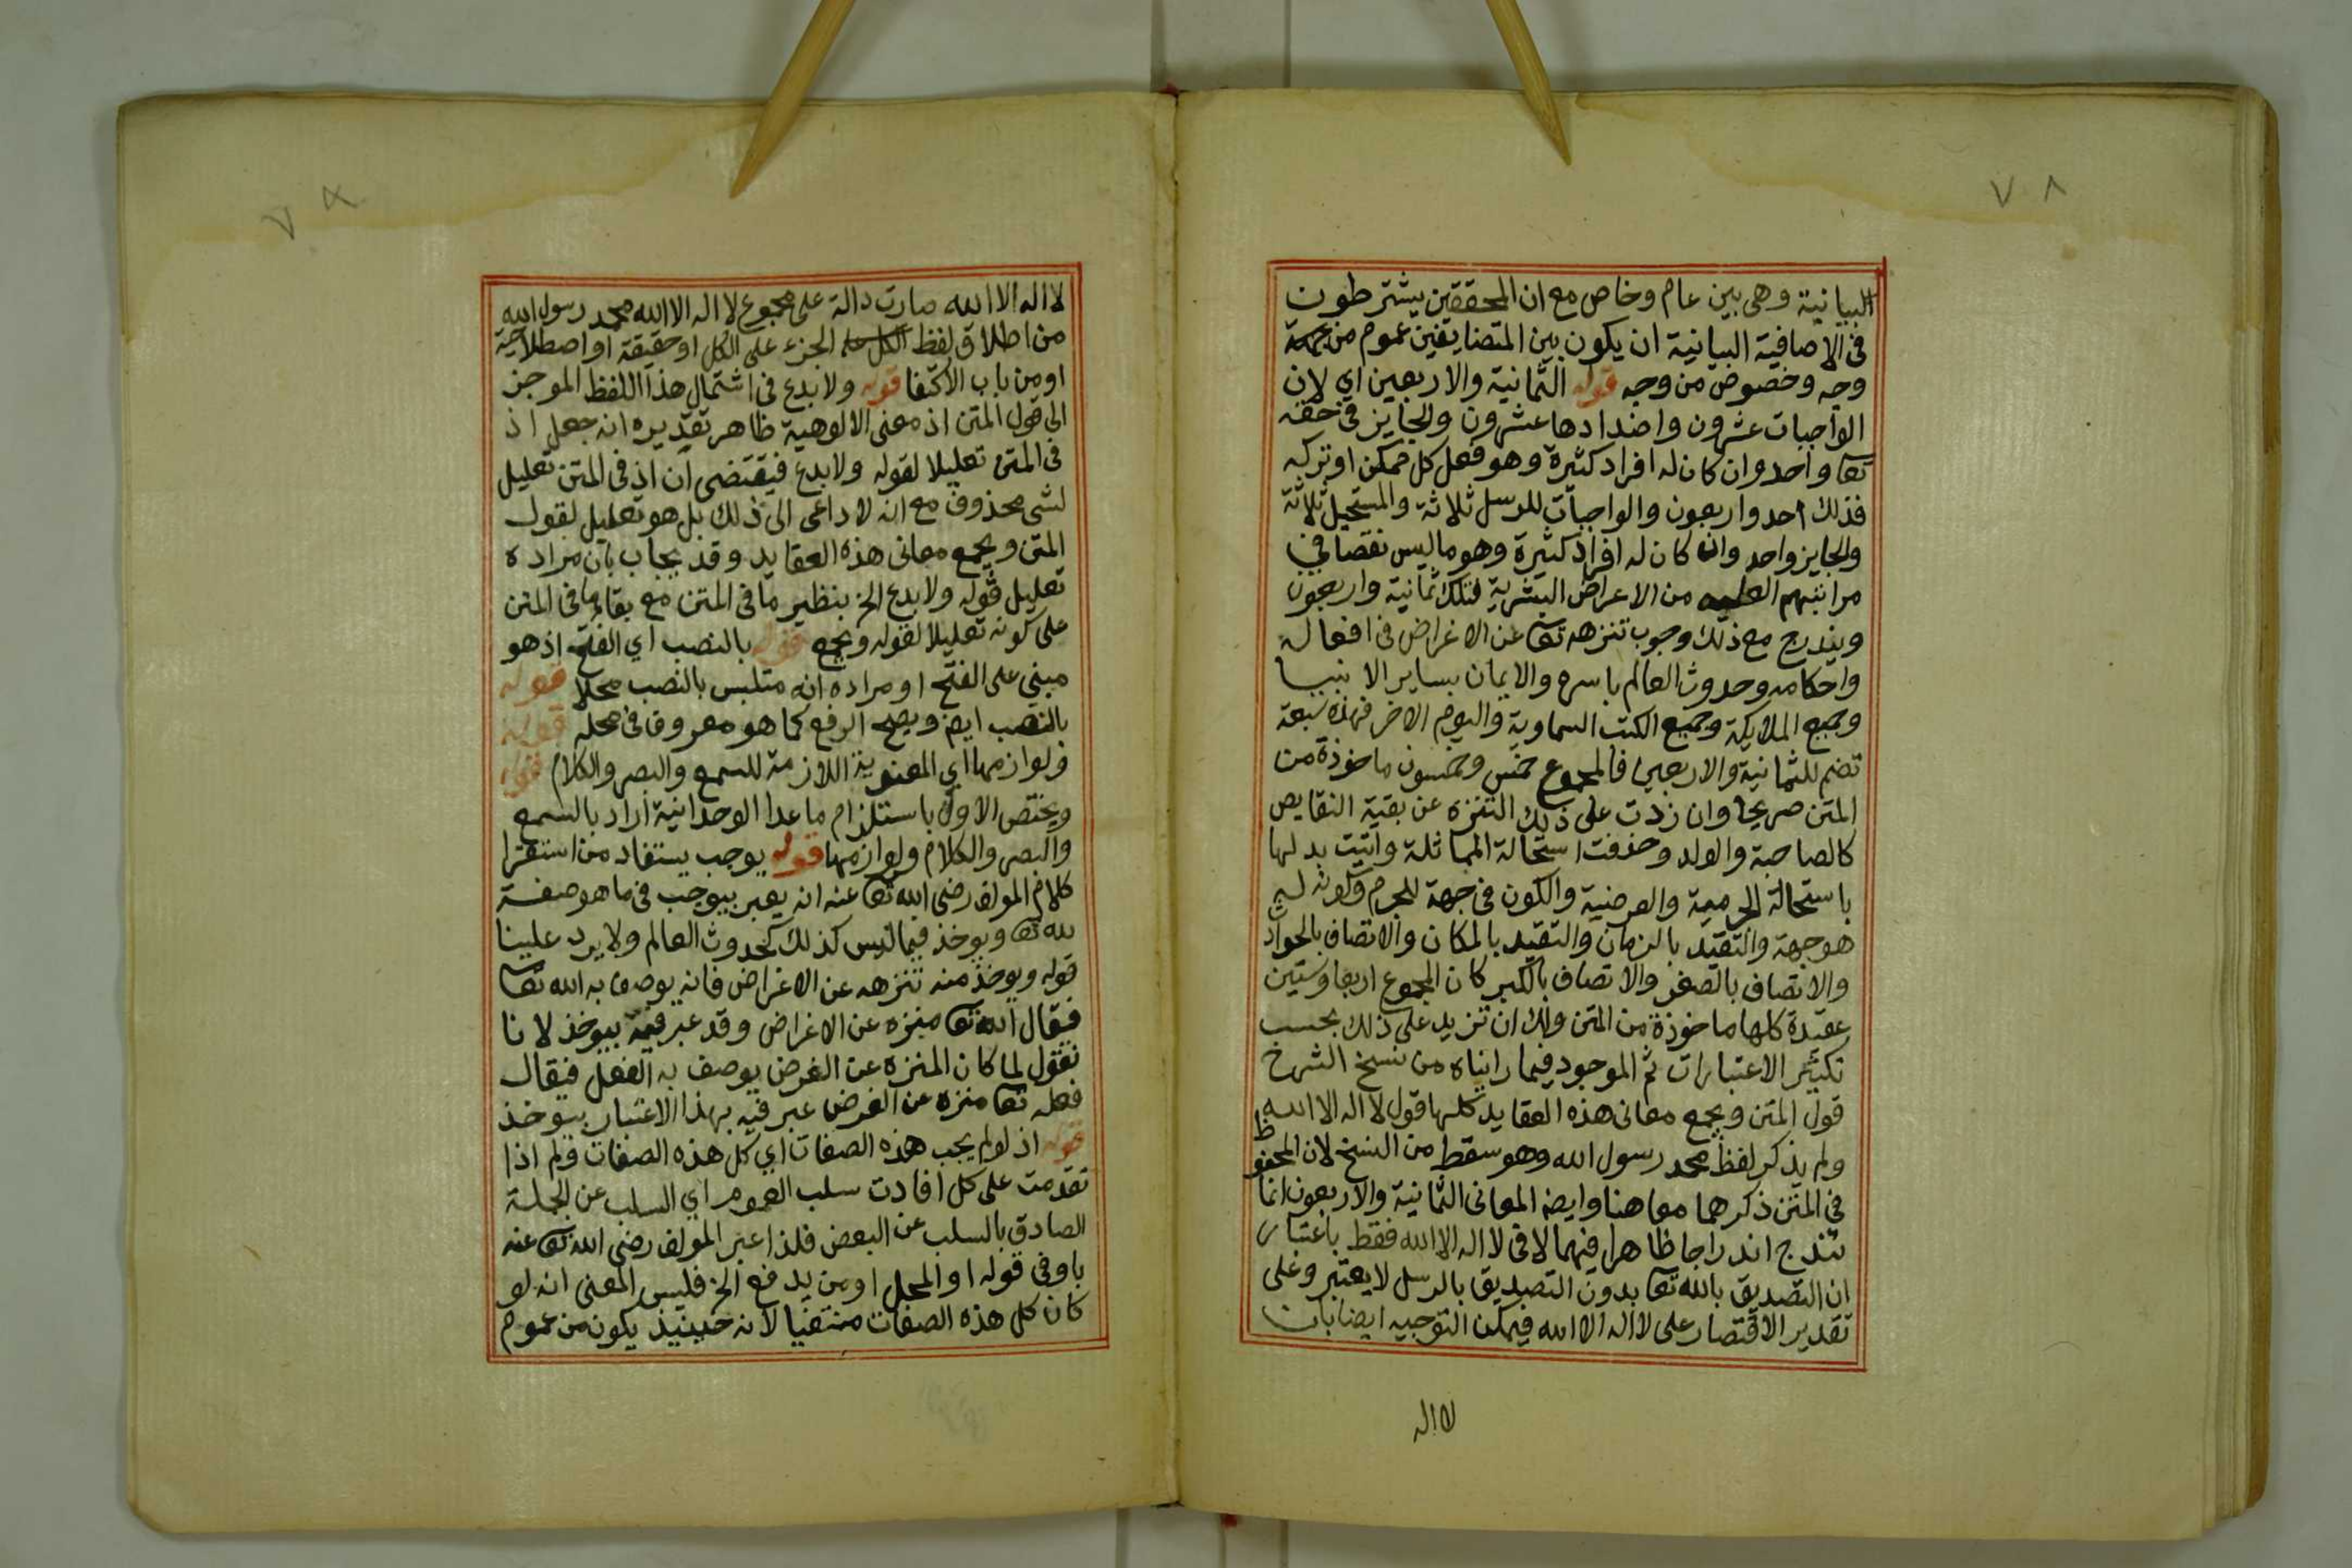 ٧٨
البيانية وهى بين عام وخاص مع ان المحققين يشترطون
فى الاضافية البيانية ان يكون بين المتضايفين عموم من
وجه وخصوص من وجه قوله الثمانية والاربعين اي لان
الواجبات عشرون واضدادها عشرون والجايز فى حقه
تعا واحد وان كان له افراد كثيرة وهو فعل كل ممكن او تركه
فذلك احد واربعون والواجبات للرسل ثلاثة والمستحيل ثلاثة
والجايز واحد وان كان له افراد كثيرة وهو ما ليس نقصا فى
مراتبهم العليه من الاعراض البشرية فتلك ثمانية واربعون
ويندرج مع ذلك وجوب تنزهه تعا عن الاغراض فى افعاله
واحكامه وحدوث العالم باسره والايمان بساير الانبيا
وجميع الملايكة وجميع الكتب السماوية واليوم الاخر فهذه سبعة
تضم للثمانية والاربعين فالمجموع خمس وخمسون ماخوذة من
المتن صريحا وان زدت على ذلك التنزه عن بقية النقايص
كالصاحبة والولد وحذفت استحالة المماثلة واتيت بدلها
باستحالة الجرمية والعرضية والكون فى جهة للجرم وكونه له
هو جهة والتقيد بالزمان والتقيد بالمكان والاتصاف بالحوادث
والاتصاف بالصغر والاتصاف بالكبر كان المجموع اربعا وستين
عقيدة كلها ماخوذة من المتن ولك ان تزيد على ذلك بحسب
تكثير الاعتبارات ثم الموجود فيما رايناه من نسخ الشرح
قول المتن ويجمع معانى هذه العقايد كلها قول لا اله الا الله
ولم يذكر لفظ محمد رسول الله وهو سقط من النسخ لان المحفوظ
فى المتن ذكرهما معا هنا وايضا المعانى الثمانية والاربعون انما
تندرج اندراجا ظاهرا فيهما لا فى لا اله الا الله فقط باعتبار
ان التصديق بالله تعا بدون التصديق بالرسل لا يعتبر وعلى
تقدير الاقتصار على لا اله الا الله فيمكن التوجيه ايضا بان
لا اله
لا اله الا الله صارت دالة على مجموع لا اله الا الله محمد رسول الله
من اطلاق لفظ الجزء على الكل او حقيقة او اصطلاحية
او من باب الاكتفا قوله ولا بدع فى اشتمال هذا اللفظ الموجز
الى قول المتن اذ معنى الالوهية ظاهر تقديره انه جعل اذ
فى المتن تعليلا لقوله ولا بدع فيقتضى ان اذ فى المتن تعليل
لشى محذوف مع انه لا داعى الى ذلك بل هو تعليل لقول
المتن ويجمع معانى هذه العقايد وقد يجاب بان مراده
تعليل قوله ولا بدع الخ بنظير ما فى المتن مع بقاء ما فى المتن
على كونه تعليلا لقوله ويجمع قوله بالنصب اي الفتح اذ هو
مبني على الفتح او مراده انه متلبس بالنصب محلا قوله
بالنصب ايضا ويصح الرفع كما هو معروف فى محله قوله
ولوازمها اي المعنوية اللازمة للسمع والبصر والكلام قوله
ويختص الاول باستلزام ما عدا الوحدانية اراد بالسمع
والبصر والكلام ولوازمها قوله يوجب يستفاد من استقرا
كلام المولف رضى الله تعا عنه انه يعبر بيوجب فى ما هو صفة
لله تعا ويوخذ فيما ليس كذلك كحدوث العالم ولا يرد علينا
قوله ويوخذ منه تنزهه عن الاغراض فانه يوصف به الله تعا
فيقال الله تعا منزه عن الاغراض وقد عبر فيه بيوخذ لانا
نقول لما كان المنزه عن الغرض يوصف به الفعل فيقال
فعله تعا منزه عن الغرض عبر فيه بهذا الاعتبار بيوخذ
قوله اذ لو لم يجب هذه الصفات اي كل هذه الصفات ولم اذا
تقدمت على كل افادت سلب العموم اي السلب عن الجملة
الصادق بالسلب عن البعض فلذا عبر المولف رضى الله تعا عنه
باو فى قوله او المحل او من يدفع الخ فليس المعنى انه لو
كان كل هذه الصفات منتفيا لانه حينيذ يكون من عموم